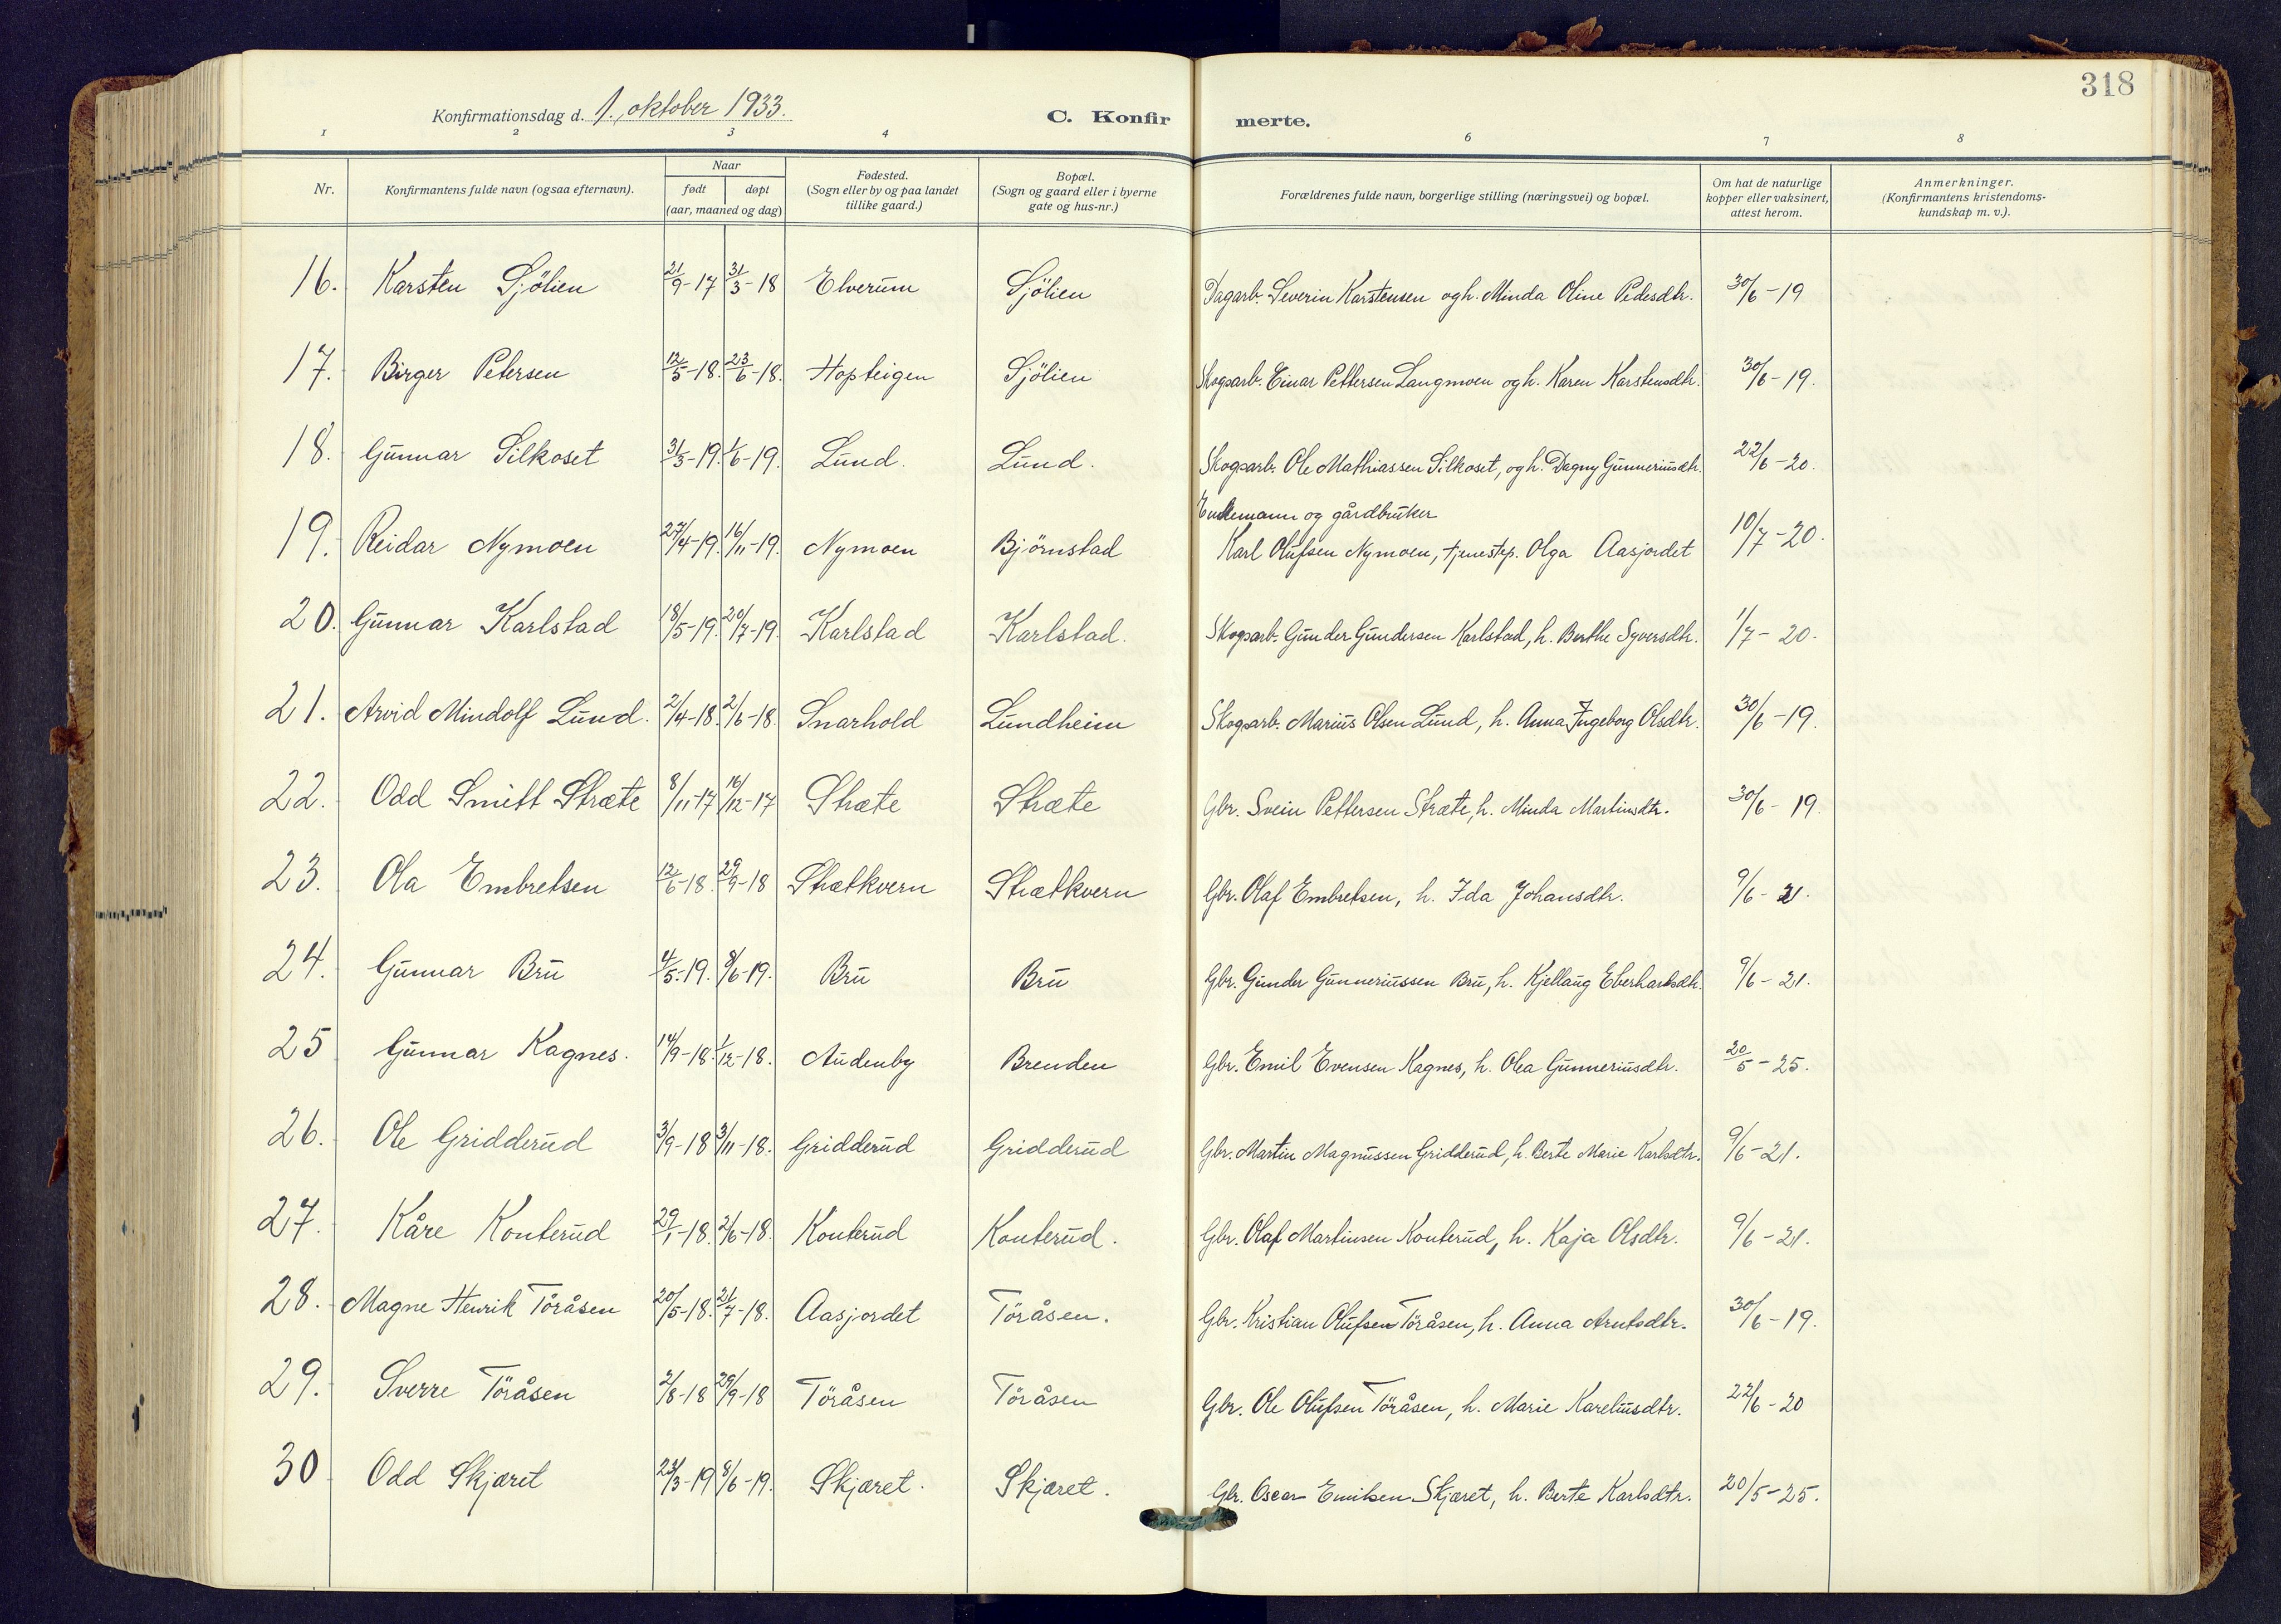 318
Konfirmationsdag d. 1. oktober 1933.
C. Konfirmerte.
1 2 3 4 6 7 8
Nr.
Konfirmantens fulde navn (ogsaa efternavn).
Naar
født døpt
(aar, maaned og dag)
Fødested.
(Sogn eller by og paa landet
tillike gaard.)
Bopæl.
(Sogn og gaard eller i byerne
gate og hus-nr.)
Forældrenes fulde navn, borgerlige stilling (næringsvei) og bopæl.
Om hat de naturlige
kopper eller vaksinert,
attest herom.
Anmerkninger.
(Konfirmantens kristendoms-
kundskap m. v.).
16. Karsten Sjölien 21/9-17 31/3-18 Elverum Sjölien Dagarb. Severin Karstensen og h. Minda Oline Pedesdtr. 30/6-19
17. Birger Petersen 12/5-18. 23/6-18. Hopteigen Sjölien Skogsarb. Einar Pettersen Langmoen og h. Karen Karstensdtr. 30/6-19.
18. Gunnar Silkoset 31/3-19. 1/6-19. Lund. Lund. Skogsarb. Ole Mathiassen Silkoset, og h. Dagny Gunneriusdtr. 22/6-20.
Enkemann og gårdbruker
19. Reidar Nymoen 27/4-19. 16/11-19. Nymoen Björnstad Karl Olufsen Nymoen, tjenestep. Olga Aasjordet 10/7-20.
20. Gunnar Karlstad 18/5-19. 20/7-19. Karlstad Karlstad. Skogsarb. Gunder Gundersen Karlstad, h. Berthe Syversdtr. 1/7-20.
21. Arvid Mindolf Lund. 2/4-18. 2/6-18. Snarhold Lundheim Skogsarb. Marius Olsen Lund, h. Anna Ingeborg Olsdtr. 30/6-19.
22. Odd Smitt Stræte 8/11-17 16/12-17 Stræte Stræte Gbr. Svein Pettersen Stræte, h. Minda Martinsdtr. 30/6-19.
23. Ola Embretsen 12/6-18. 29/9-18 Strætkvern Strætkvern Gbr. Olaf Embretsen, h. Ida Johansdtr. 9/6-21.
24. Gunnar Bru 4/5-19. 8/6-19. Bru Bru Gbr. Gunder Gunneriussen Bru, h. Kjellaug Eberhartsdtr. 9/6-21.
25 Gunnar Kagnes. 14/9-18. 1/12-18. Audenby Brenden Gbr. Emil Evensen Kagnes, h. Olea Gunneriusdtr. 20/5-25.
26. Ole Gridderud 3/9-18 3/11-18. Gridderud Gridderud Gbr. Martin Magnussen Gridderud, h. Berte Marie Karlsdtr. 9/6-21.
27. Kåre Konterud 29/1-18. 2/6-18. Konterud Konterud. Gbr. Olaf Martinsen Konterud, h. Kaja Olsdtr. 9/6-21.
28. Magne Henrik Töråsen 20/5-18. 21/7-18. Aasjordet Töråsen. Gbr. Kristian Olufsen Töråsen, h. Anna Arntsdtr. 30/6-19.
29. Sverre Töråsen 2/8-18 29/9-18 Töråsen Töråsen Gbr. Ole Olufsen Töråsen, h. Marie Kareliusdtr. 22/6-20
30 Odd Skjæret 23/3-19 8/6-19. Skjæret. Skjæret. Gbr. Oscar Emilsen Skjæret, h. Berte Karlsdtr. 20/5-25.